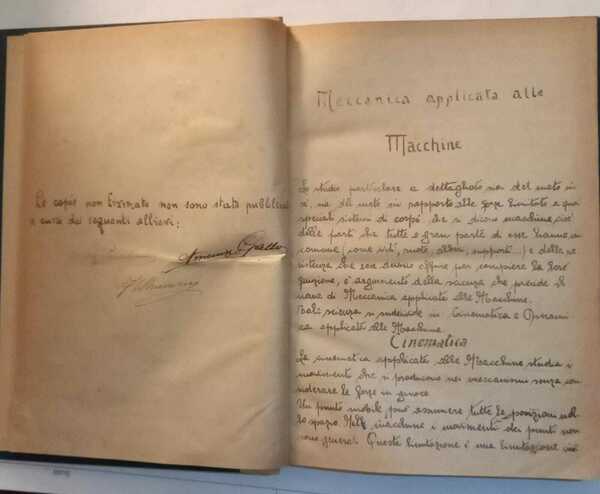 Le copie non firmate non sono state pubblicate
a cura dei seguenti allievi:
Vincenzo Gallo
Meccanica applicata alle
Macchine
Lo studio particolare e dettagliato sia del moto in
sé, sia del moto in rapporto alle forze limitato a quei
speciali sistemi di corpi che si dicono macchine, cioè
delle parti che tutte o gran parte di esse hanno in
comune (come viti, ruote, alberi, supporti...) e della re
sistenza che essi devono offrire per compiere la loro
funzione, è argomento della scienza che prende il
nome di Meccanica applicata alle Macchine.
Tale scienza si suddivide in Cinematica e Dinami
ca applicata alle Macchine.
Cinematica
La cinematica applicata alle Macchine studia i
movimenti che si producono nei meccanismi senza con
siderare le forze in gioco.
Un punto mobile può assumere tutte le posizioni nel
lo spazio. Nelle macchine i movimenti dei punti non
sono generali. Questa limitazione è una limitazione